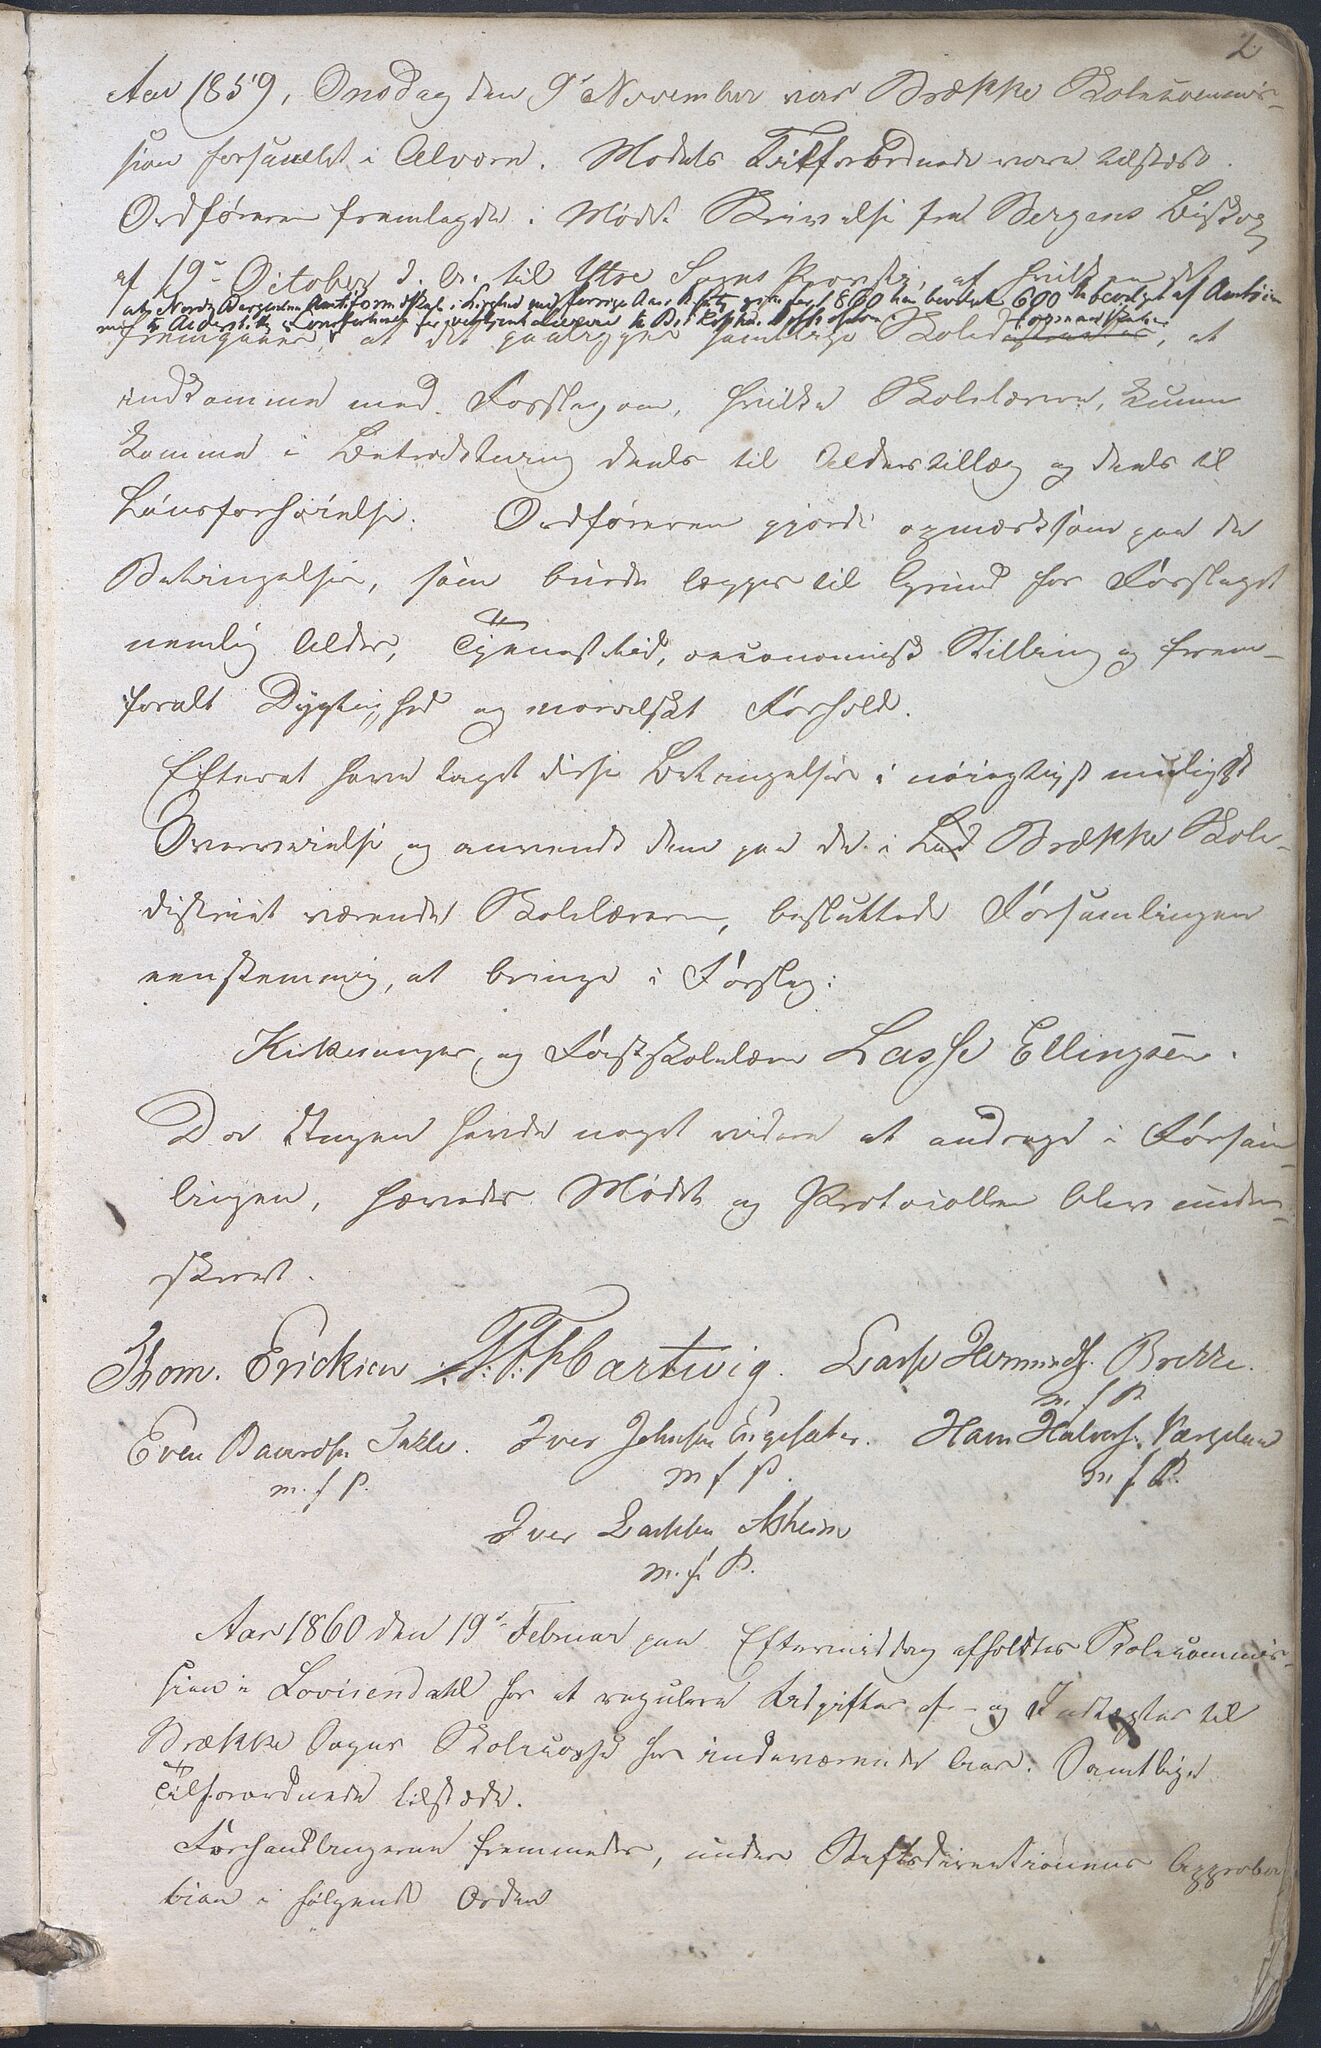 2
Aar 1859, Onsdag den 9de November var Brække Skolecommis-
sion forsamlet i Alværn. Mødets Tilforordnede vare tilstede.
Ordføreren fremlagde i Mødet Skrivelse fra Bergens Biskop
af 19de October d. A. til Ytre Sogns Provsti, af hvilken det
at Nordre Bergenhus Amtsformandskab i Lighed med forrige Aar for 1860 har bevilget 600 bevilget af Amts
til Alderstillæg Lønsforhøielse for Skolelærere
fremgaaer, at det paalægges samtlige Skole, at
indkomme med Forslag om, hvilke Skolelærere, kunne
komme i Betragtning deels til Alderstillæg og deels til
Lønsforhøielse. Ordføreren gjorde opmærksom paa de
Betingelser, som burde lægges til Grund for Forslaget
nemlig Alder, Tjenestetid, oeconomisk Stilling og frem-
foralt Dygtighed og moralskt Forhold.
Efterat have taget disse Betingelser i nøiagtigst muligst
Overveielse og anvendt dem paa de i Brække Skole-
district værende Skolelærere, besluttede Forsamlingen
eenstemmig, at bringe i Forslag:
Kirkesanger og Fastskolelærer Lasse Ellingsen.
Da Ingen havde noget videre at andrage i Forsam-
lingen, hævedes Mødet og Protocollen blev under-
skrevet.
Thom. Erichsen F. F. Hartwig. Lasse Hermunds. Brekke.
m f P
Even Baardsen Takle. Iver Johnsen Engesæter. Hans Halvors.
m. f P. m f P. m f P.
Iver Larssen Asheim
m. f. P.
Aar 1860 den 19de Februar paa Eftermiddag afholdtes Skolecommis-
sion i Lovisendahl for at regulere Udgifter af- og Indtægter til
Brække Sogns Skolecasse for indeværende Aar. Samtlige
Tilforordnede tilstæde.
Forhandlingerne fremmedes, under Stiftsdirectionens Approba-
tion i følgende Orden